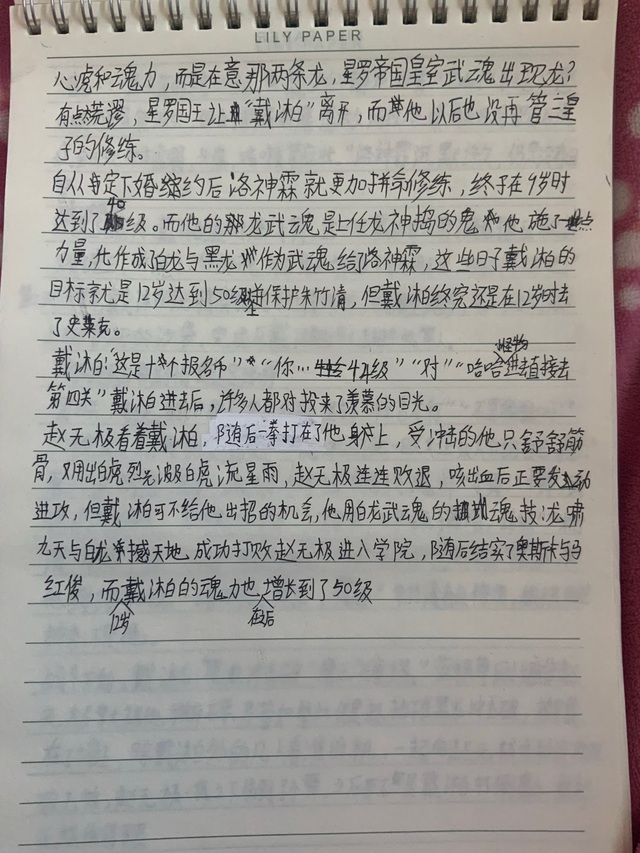 LILY PAPER
心虎和魂力，而是在意那两条龙，星罗帝国皇室武魂出现龙？
有点荒谬，星罗国王让"戴沐白"离开，而其他以后也没再管三皇
子的修练。
自从肯定下婚约后洛神霖就更加拼命修练，终于在9岁时
达到了40级。而他的龙武魂是上任龙神捣的鬼他施了点
力量，化作成了白龙与黑龙作为武魂给了洛神霖，这些日子戴沐白的
目标就是12岁达到50级保护朱竹清，但戴沐白终究还是在12岁时去
了史莱克。
戴沐白："这是十个报名币""你…44级""对""哈哈怪物进去直接去
第四关"戴沐白进去后，许多人都对投来了羡慕的目光。
赵无极看着戴沐白，随后一拳打在了他身上，受冲击的他只舒舒筋
骨，又用出白虎烈光波及白虎流星雨，赵无极连连败退，咳出血后正要发动
进攻，但戴沐白可不给他出招的机会，他用白龙武魂的魂技：龙啸
九天与白龙撼天地成功打败赵无极进入学院，随后结实了奥斯卡与马
红俊，而戴沐白白的魂力也增长到了50级
12岁 在之后